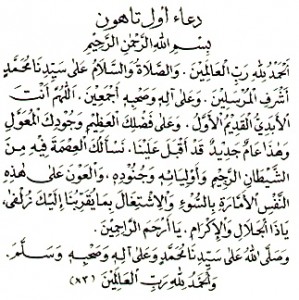 دعاء أول تاهون
بِسْمِ اللهِ الرَّحْمٰنِ الرَّحِيْمِ
اَلْحَمْدُ لِلّٰهِ رَبِّ الْعَالَمِيْنَ . وَالصَّلَاةُ وَالسَّلَامُ عَلَى سَيِّدِنَا مُحَمَّدٍ
أَشْرَفِ الْمُرْسَلِيْنَ . وَعَلَى آلِهِ وَصَحْبِهِ أَجْمَعِيْنَ . اَللّٰهُمَّ أَنْتَ
الْأَبَدِيُّ الْقَدِيْمُ الْأَوَّلُ . وَعَلَى فَضْلِكَ الْعَظِيْمِ وَجُوْدِكَ الْمُعَوَّلِ
وَهٰذَا عَامٌ جَدِيْدٌ قَدْ أَقْبَلَ عَلَيْنَا . نَسْأَلُكَ الْعِصْمَةَ فِيْهِ مِنَ
الشَّيْطَانِ الرَّجِيْمِ وَأَوْلِيَائِهِ وَجُنُوْدِهِ . وَالْعَوْنَ عَلَى هٰذِهِ
النَّفْسِ الْأَمَّارَةِ بِالسُّوْءِ وَالْاِشْتِغَالَ بِمَا يُقَرِّبُنَا إِلَيْكَ زُلْفَى،
يَاذَا الْجَلَالِ وَالْإِكْرَامِ . يَا أَرْحَمَ الرَّاحِمِيْنَ .
وَصَلَّى اللهُ عَلَى سَيِّدِنَا مُحَمَّدٍ وَعَلَى آلِهِ وَصَحْبِهِ وَسَلَّمَ .
وَالْحَمْدُ لِلّٰهِ رَبِّ الْعَالَمِيْنَ (٨٣)